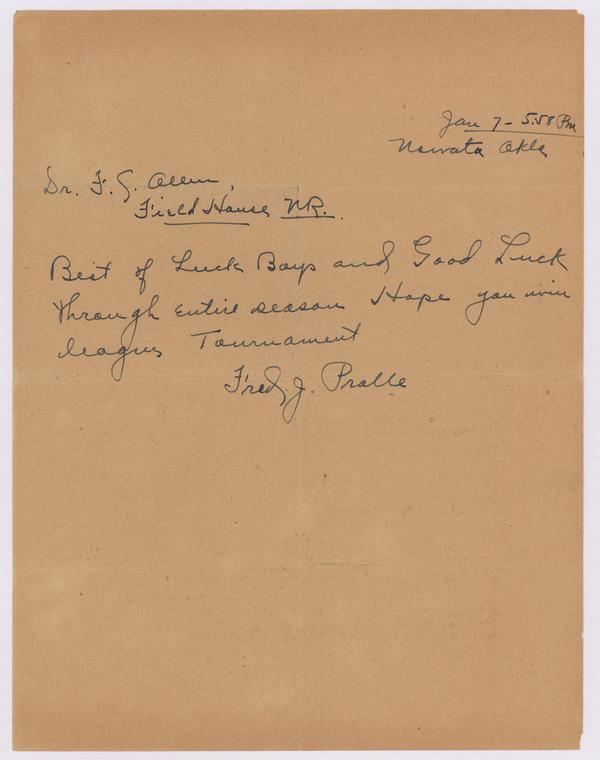 Jan 7 - 5:58 Pm
Nowata Okla
Dr. F. G. Allen,
Field House NR.
Best of Luck Boys and Good Luck
through entire season Hope you win
league Tournament
Fred J. Pralle